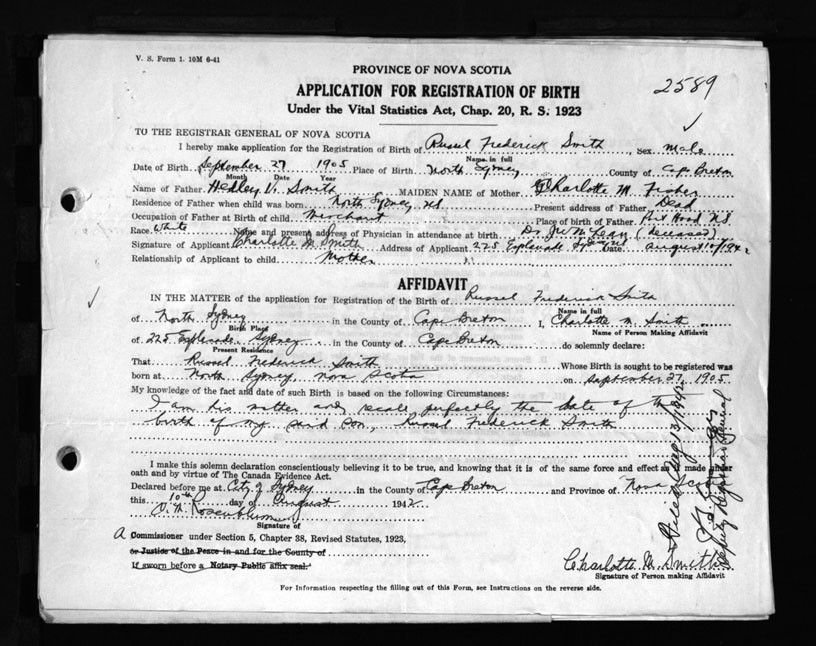 V. S. Form 1. 10M 6-41
PROVINCE OF NOVA SCOTIA
2589
APPLICATION FOR REGISTRATION OF BIRTH
Under the Vital Statistics Act, Chap. 20, R. S. 1923
TO THE REGISTRAR GENERAL OF NOVA SCOTIA
I hereby make application for the Registration of Birth of Russel Frederick Smith, Sex Male
Name in full
Date of Birth September 27 1905 Place of Birth North Sydney County of Cape Breton
Month Date Year
Name of Father Hedley V. Smith MAIDEN NAME of Mother Charlotte M. Fisher
Residence of Father when child was born North Sydney NS Present address of Father Dead
Occupation of Father at Birth of child Merchant Place of Birth of father Port Hood NS
Race White Name and present address of Physician in attendance at birth Dr. McLean (deceased)
Signature of Applicant Charlotte M Smith Address of Applicant 225 Esplanade Sydney NS Date August 10/1942
Relationship of Applicant to child Mother
AFFIDAVIT
IN THE MATTER of the application for Registration of the Birth of Russel Frederick Smith
Name in full
of North Sydney in the County of Cape Breton I, Charlotte M. Smith
Birth Place Name of Person Making Affidavit
of 225 Esplanade, Sydney in the County of Cape Breton do solemnly declare:
Present Residence
That Russel Frederick Smith Whose Birth is sought to be registered was
born at North Sydney, Nova Scotia on September 27, 1905
My knowledge of the fact and date of such Birth is based on the following Circumstances:
I am his mother and recall perfectly the date of the
birth of my said son, Russel Frederick Smith
I make this solemn declaration conscientiously believing it to be true, and knowing that it is of the same force and effect as if made under
oath and by virtue of The Canada Evidence Act.
Declared before me at City of Sydney in the County of Cape Breton and Province of Nova Scotia
this 10th day of August 1942
Rosenblum
Signature of
A Commissioner under Section 5, Chapter 38, Revised Statutes, 1923,
or Justice of the Peace in and for the County of
If sworn before a Notary Public affix seal.
Charlotte M. Smith
Signature of Person making Affidavit
For Information respecting the filling out of this Form, see Instructions on the reverse side.
Aug 13/1942
Deputy Registrar General